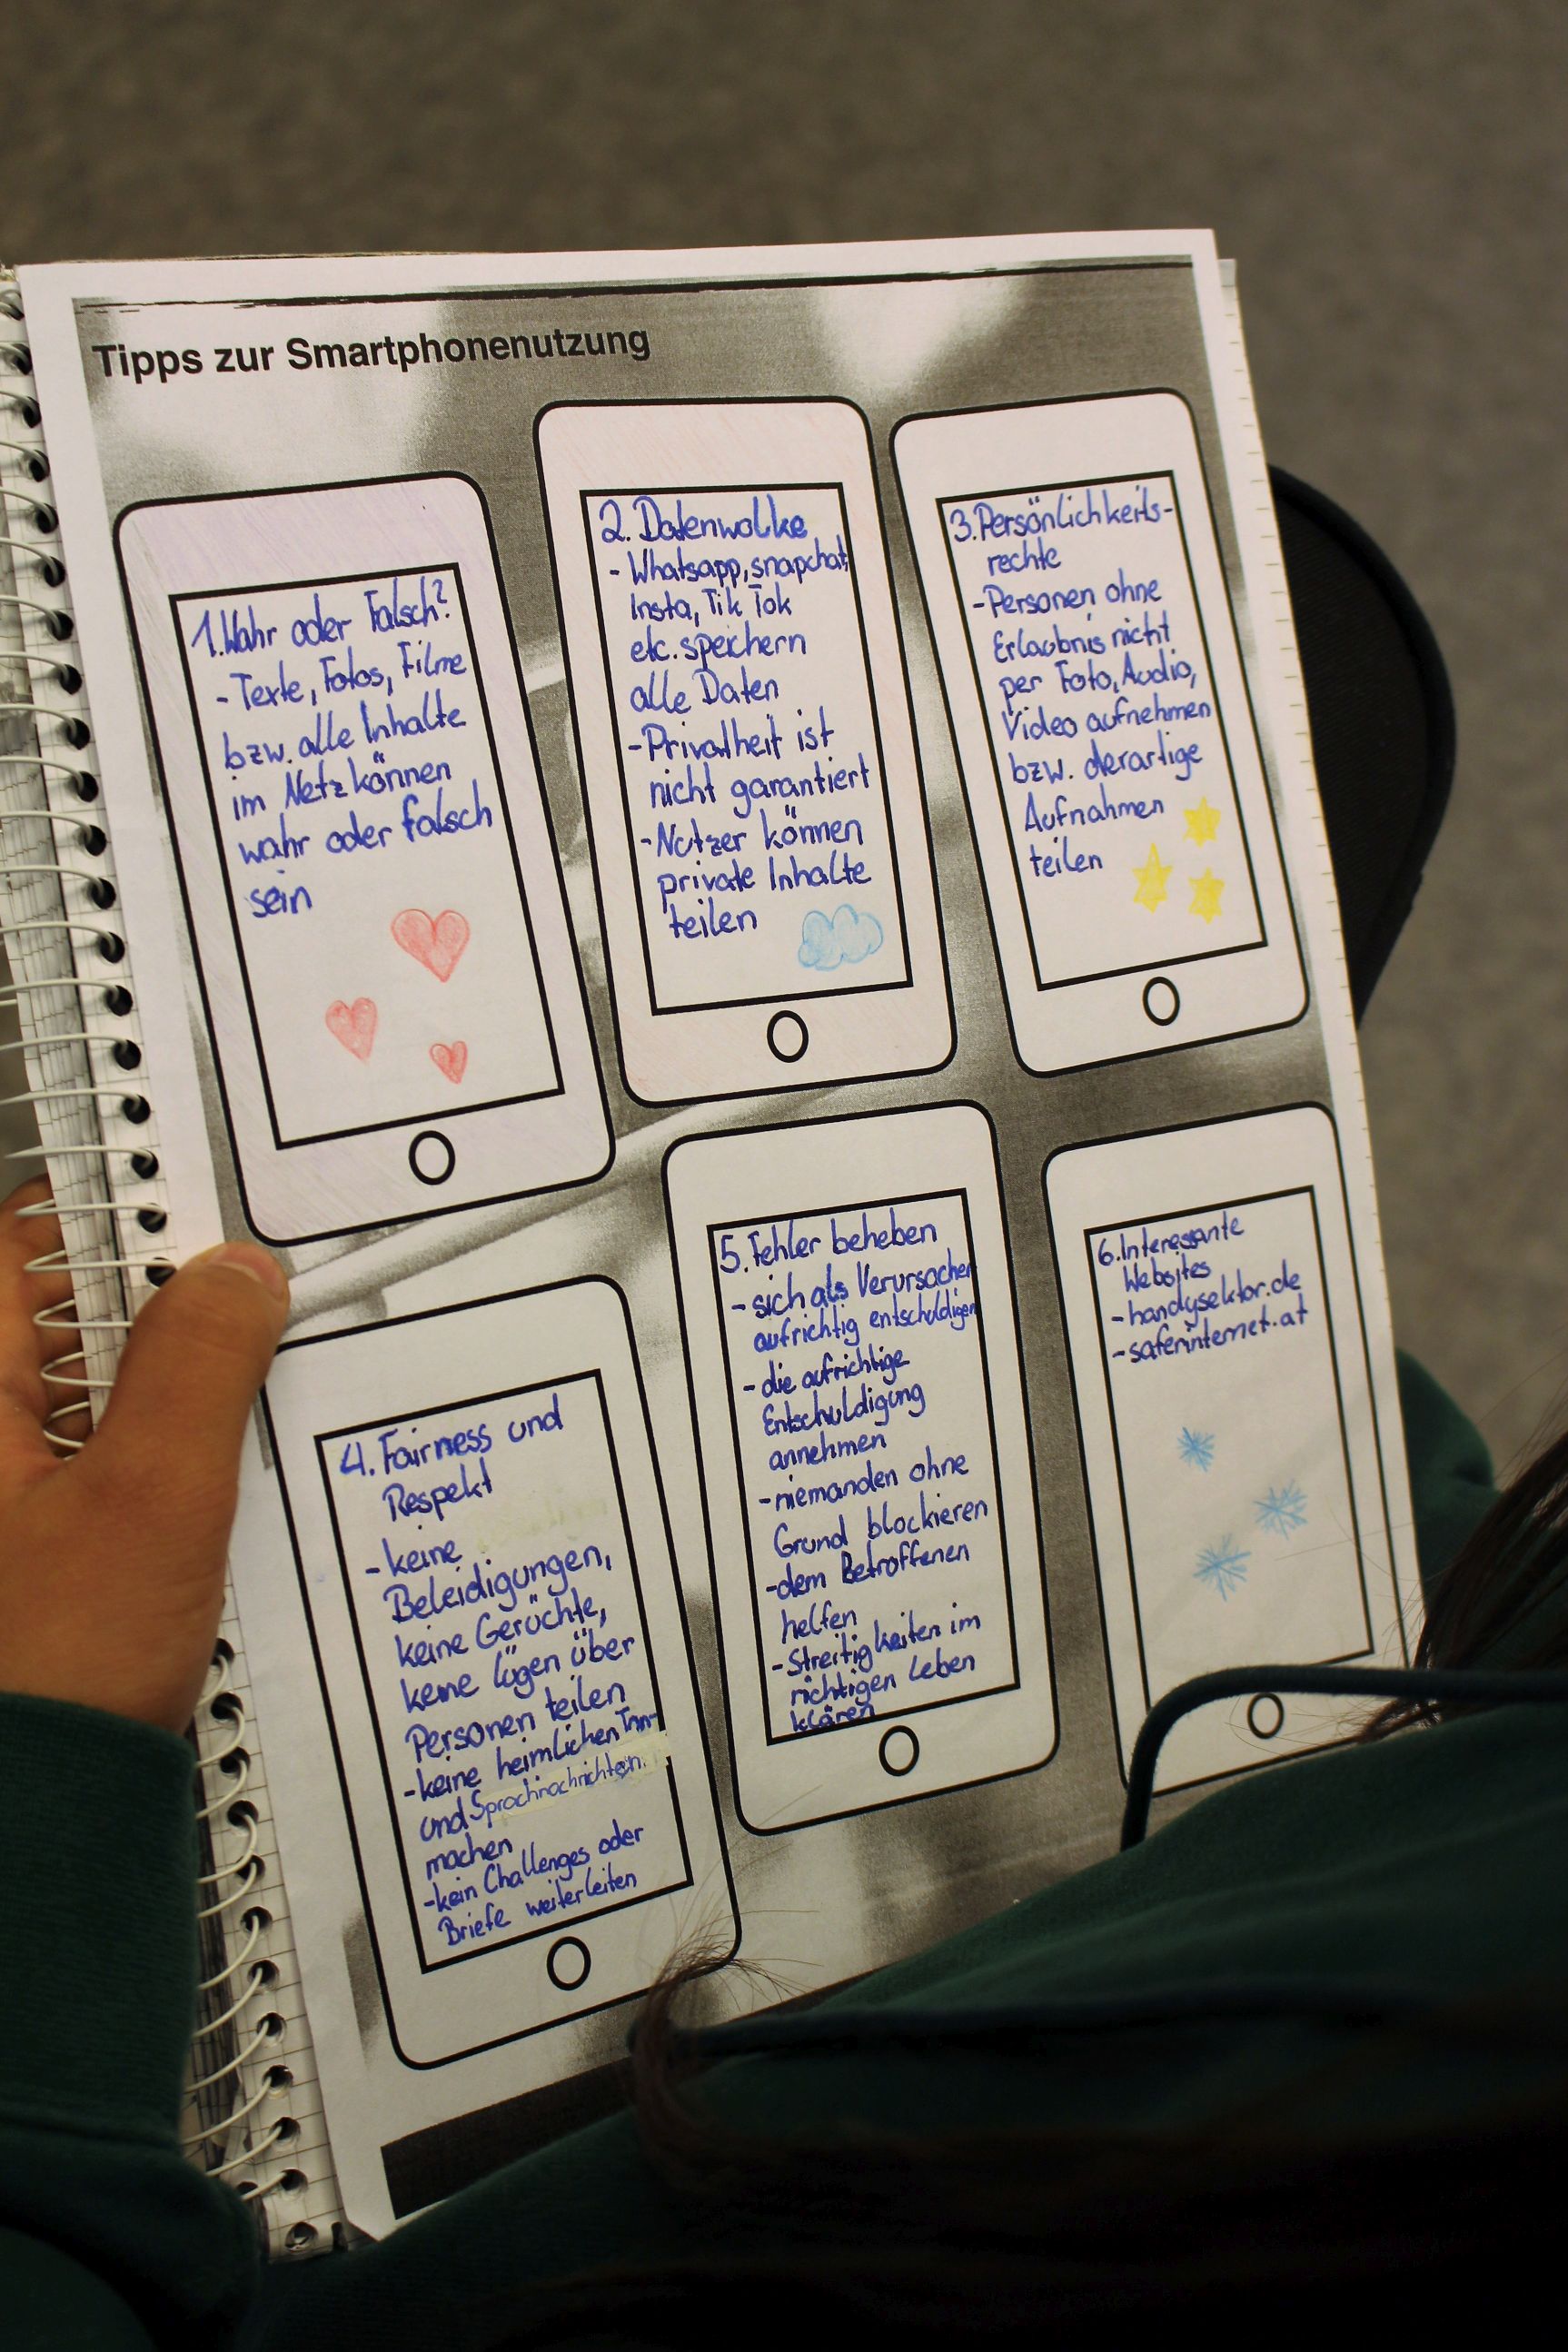 Tipps zur Smartphonenutzung
1. Wahr oder Falsch?
- Texte, Fotos, Filme
bzw. alle Inhalte
im Netz können
wahr oder falsch
sein
2. Datenwolke
- Whatsapp, snapchat,
Insta, Tik Tok
etc. speichern
alle Daten
- Privatheit ist
nicht garantiert
- Nutzer können
private Inhalte
teilen
3. Persönlichkeits-
rechte
- Personen ohne
Erlaubnis nicht
per Foto, Audio,
Video aufnehmen
bzw. derartige
Aufnahmen
teilen
4. Fairness und
Respekt
- keine
Beleidigungen,
keine Gerüchte,
keine lügen über
Personen teilen
- keine heimlichen
und Sprachnachrichten
machen
- kein Challenges oder
Briefe weiterleiten
5. Fehler beheben
- sich als Verursacher
aufrichtig entschuldigen
- die aufrichtige
Entschuldigung
annehmen
- niemanden ohne
Grund blockieren
- dem Betroffenen
helfen
- Streitigkeiten im
richtigen Leben
klären
6. Interessante
Websites
- handysektor.de
- saferinternet.at